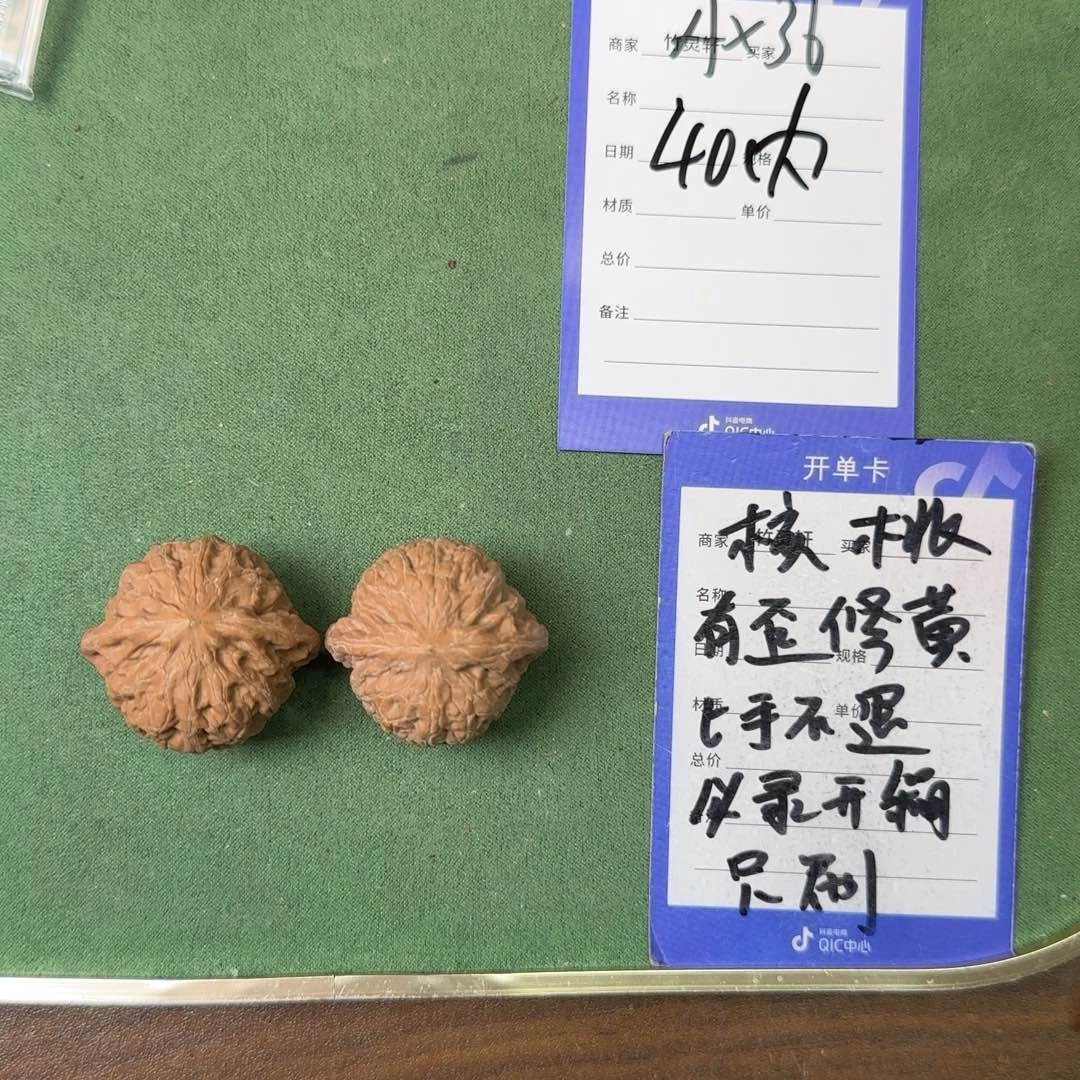 4×36
商家 竹灵轩 买家
名称
40内
日期 规格
材质 单价
总价
备注
抖音电商
QIC中心
开单卡
核桃
商家 竹灵轩 买家
名称
有歪修黄
日期 规格
上手不退
材质 单价
总价
必录开箱
只刷
抖音电商
QIC中心